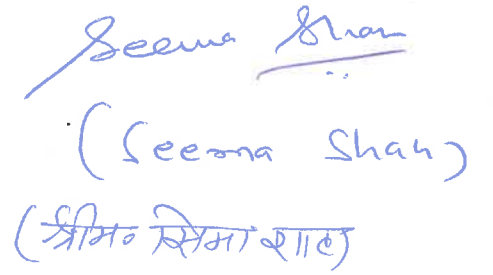 Seema Shah
(Seema Shah)
(श्रीम॰ सिमा शाह)